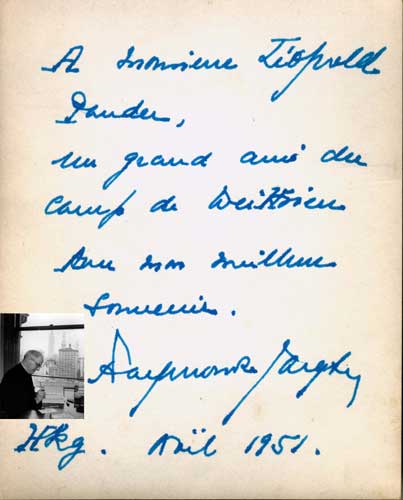 A Monsieur Léopold
Pander,
un grand ami du
camp de WeiHsien
Avec mon meilleur
souvenir.
Raymond de Jaegher
Hkg. Noël 1951.